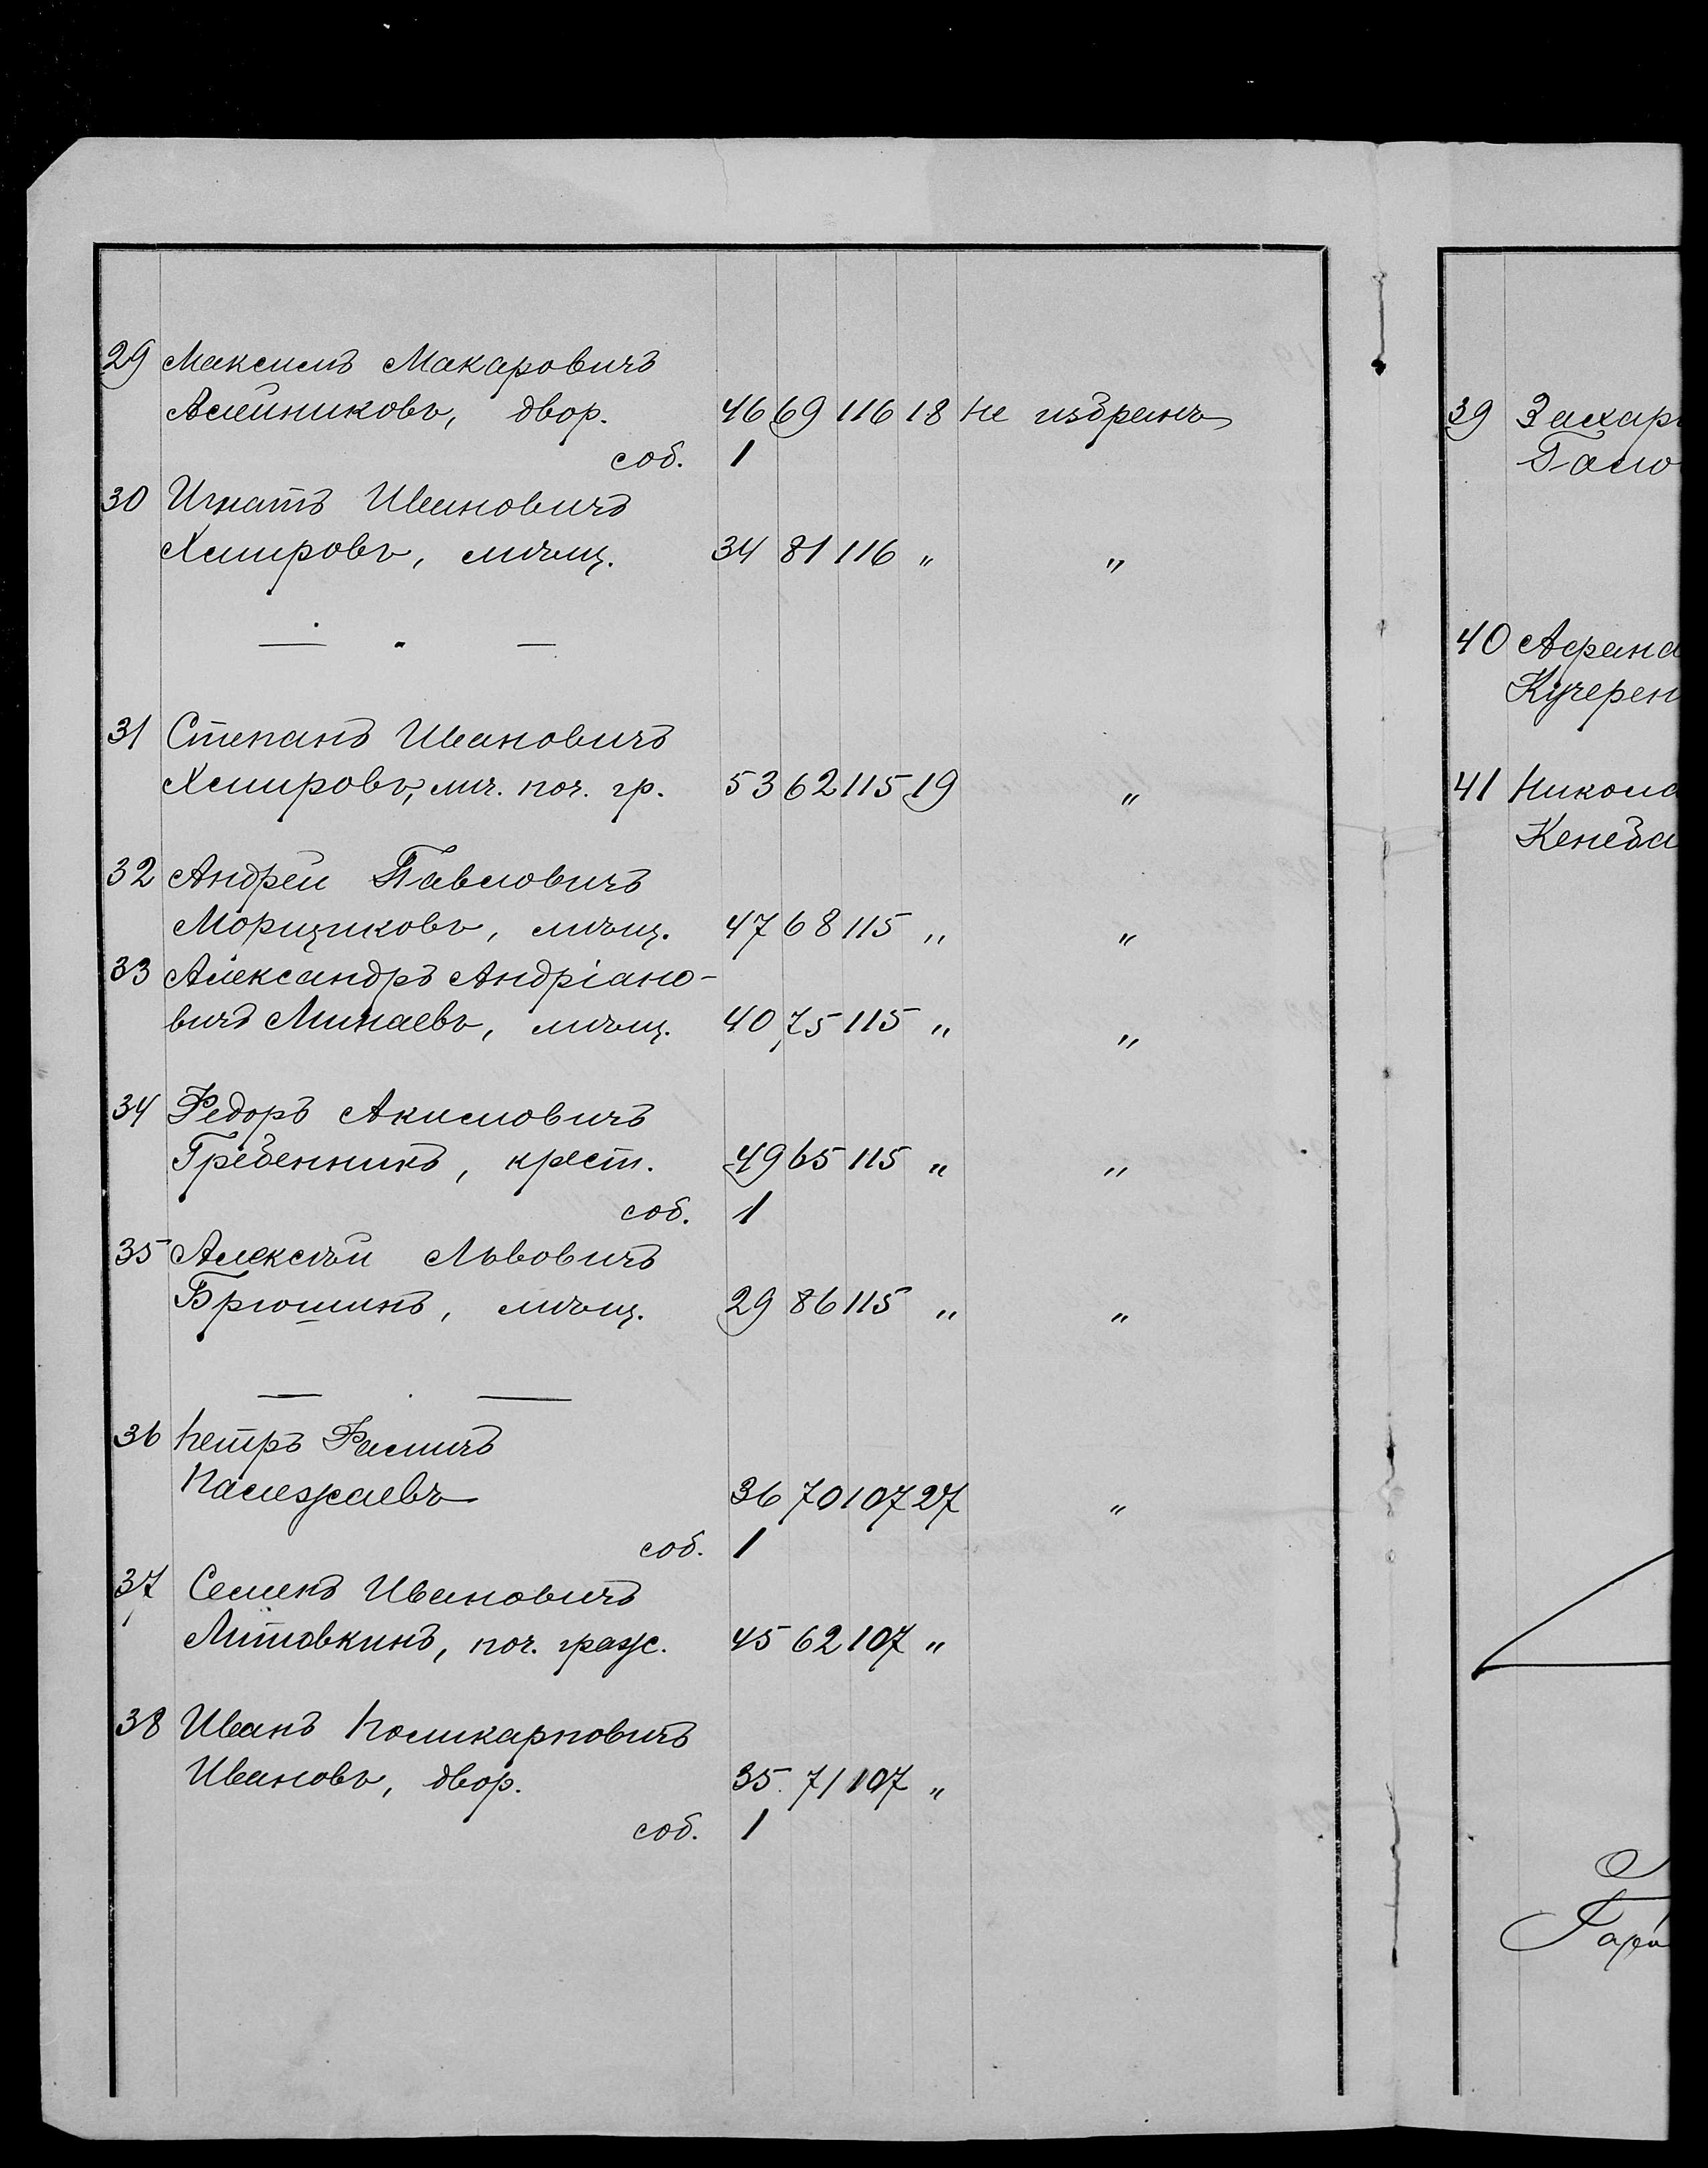 29 Максимъ Макаровичъ
Алейниковъ, двор. 46 69 116 18 Не избранъ
соб. 1
30 Игнатъ Ивановичъ
Хмировъ, мѣщ. 34 81 116 „ „
— „ —
31 Степанъ Ивановичъ
Хмировъ, лич. поч. гр. 53 62 115 19 „
32 Андрей Павловичъ
Морщиковъ, мѣщ. 47 68 115 „ „
33 Александръ Андріано-
вичъ Минаевъ, мѣщ. 40 75 115 „ „
34 Федоръ Акимовичъ
Гребенникъ, крест. 49 65 115 „ „
соб. 1
35 Алексѣй Львовичъ
Брюшинъ, мѣщ. 29 86 115 „ „
— —
36 Петръ
36 70 107 27 „
соб. 1
37 Семенъ Ивановичъ
Литовкинъ, поч. граж. 45 62 107 „
38 Иванъ Поликарповичъ
Ивановъ, двор. 35 71 107 „
соб. 1
39 Захаръ
40
Кучерен
41 Никола